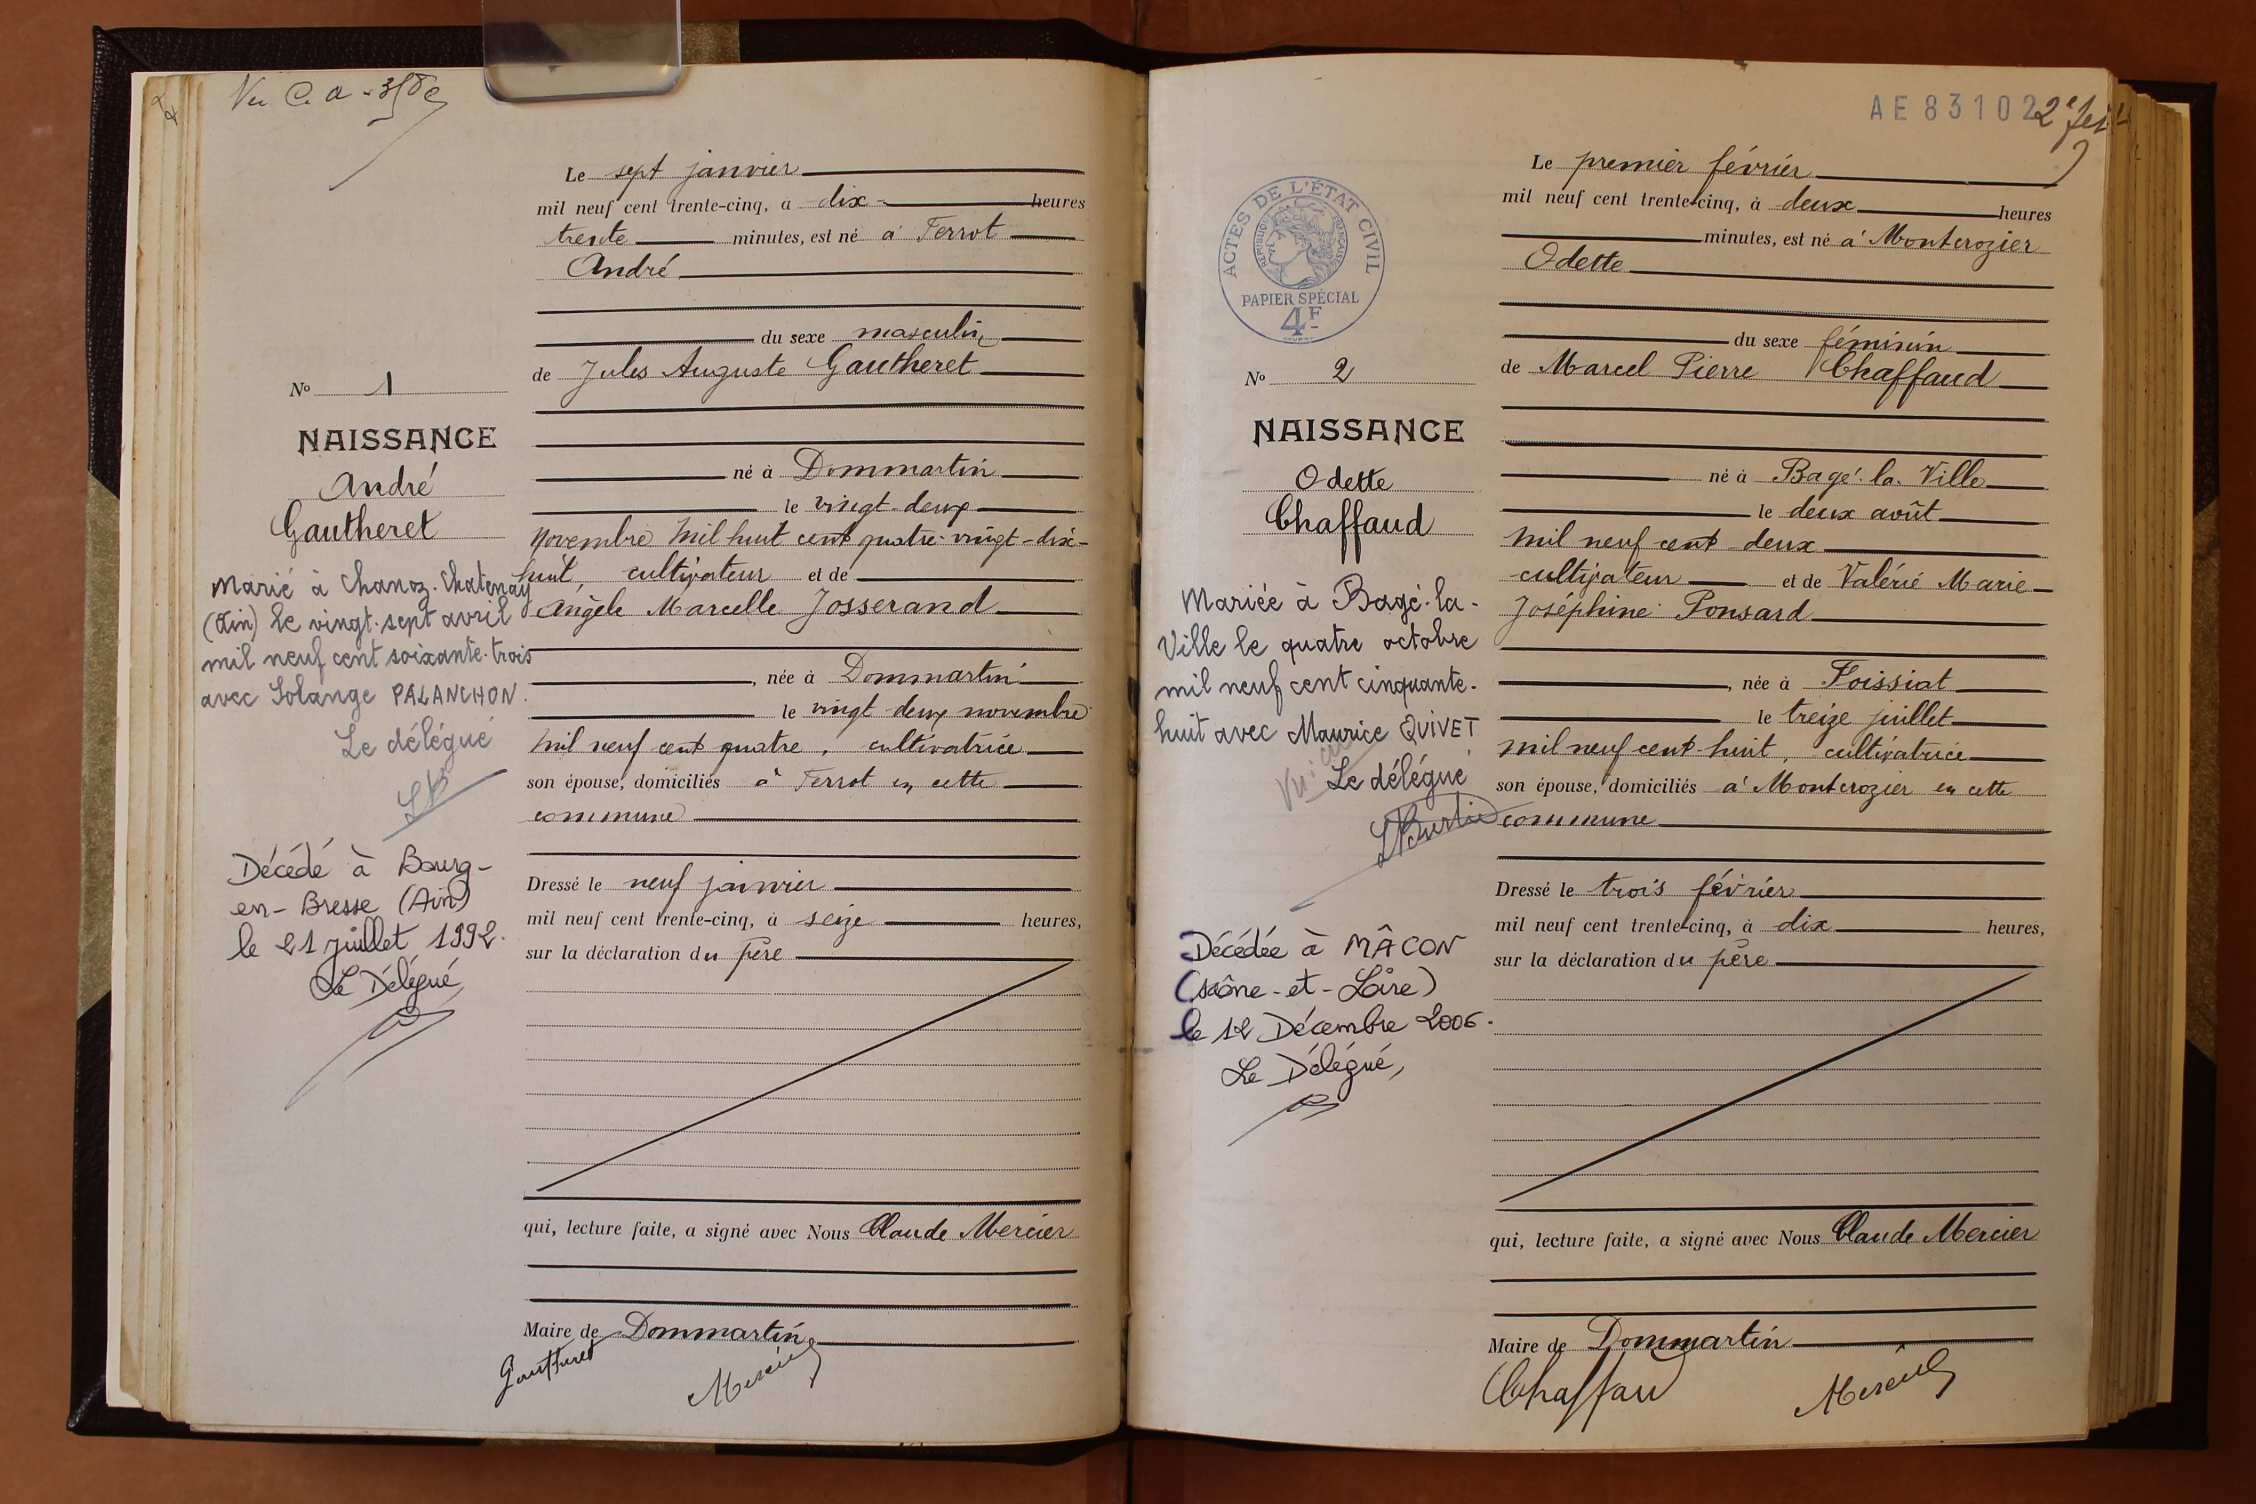 Vu C. a
Le sept janvier
mil neuf cent trente-cinq, à dix heures
trente minutes, est né à Terrot
André
du sexe masculin
de Jules Auguste Gautheret
né à Dommartin
le vingt-deux
novembre mil huit cent quatre-vingt-dix-
huit, cultivateur et de
Angèle Marcelle Josserand
, née à Dommartin
le vingt-deux novembre
mil neuf cent quatre, cultivatrice
son épouse, domiciliés à Terrot en cette
commune
Dressé le neuf janvier
mil neuf cent trente-cinq, à seize heures,
sur la déclaration du père
qui, lecture faite, a signé avec Nous Claude Mercier
Maire de Dommartin
Gautheret
Mercier
No 1
NAISSANCE
André
Gautheret
Marié à Chanoz-Chatenay
(Ain) le vingt-sept avril
mil neuf cent soixante-trois
avec Solange PALANCHON.
Le délégué
Décédé à Bourg-
en-Bresse (Ain)
le 21 juillet 1992.
Le Délégué,
AE 83102
2e
ACTES DE L'ÉTAT CIVIL
RÉPUBLIQUE FRANÇAISE
PAPIER SPÉCIAL
4F
Le premier février
mil neuf cent trente-cinq, à deux heures
minutes, est né à Montcrozier
Odette
du sexe féminin
de Marcel Pierre Chaffaud
né à Bagé-la-Ville
le deux août
mil neuf cent deux
cultivateur et de Valérie Marie
Joséphine Ponsard
, née à Foissiat
le treize juillet
mil neuf cent huit, cultivatrice
son épouse, domiciliés à Montcrozier en cette
commune
Dressé le trois février
mil neuf cent trente-cinq, à dix heures,
sur la déclaration du père
qui, lecture faite, a signé avec Nous Claude Mercier
Maire de Dommartin
Chaffaud
Mercier
No 2
NAISSANCE
Odette
Chaffaud
Mariée à Bagé-la-
Ville le quatre octobre
mil neuf cent cinquante-
huit avec Maurice QUIVET
Le délégué
Décédée à MÂCON
(Saône-et-Loire)
le 12 Décembre 2006.
Le Délégué,